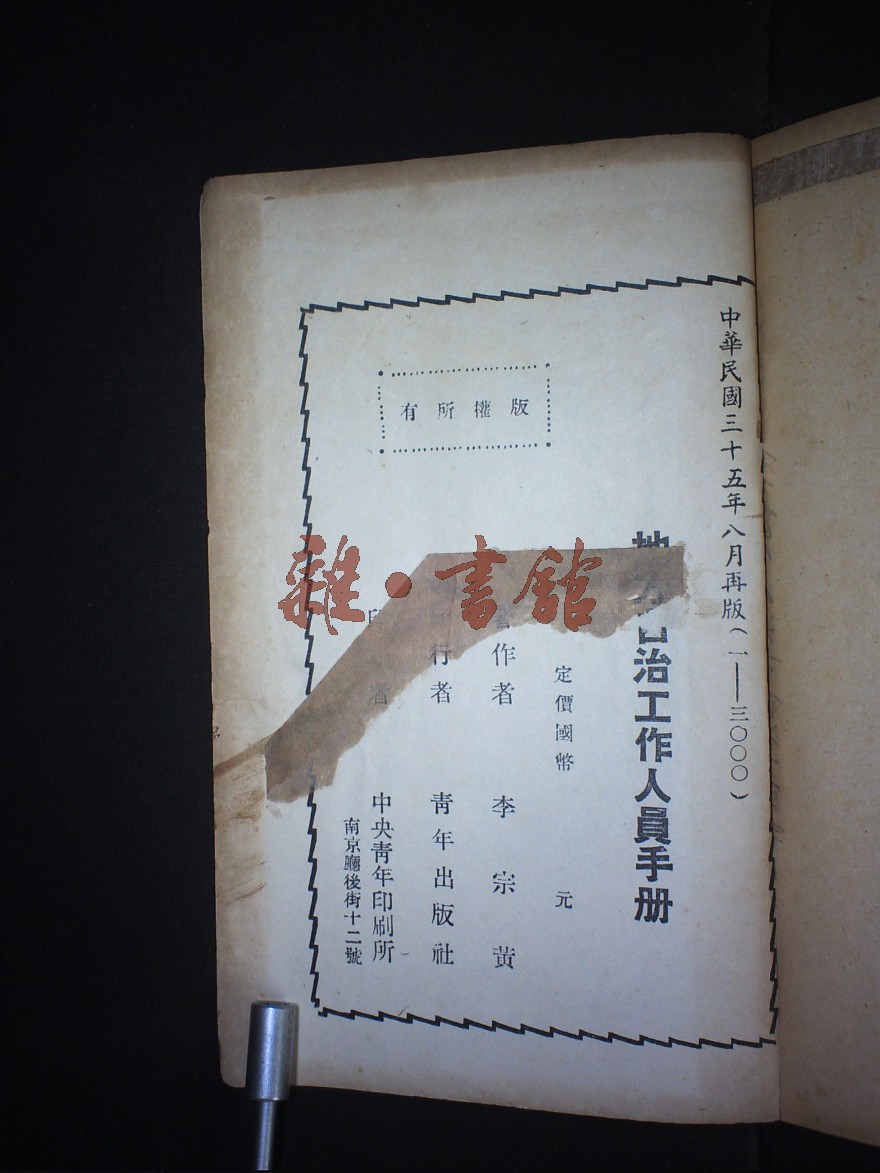 中華民國三十五年八月再版(一——三〇〇〇)
治工作人員手册
定價國幣 元
作者 李宗黄
行者 青年出版社
印 者 中央青年印刷所
南京廳後街十二號
版權所有
雜·書館